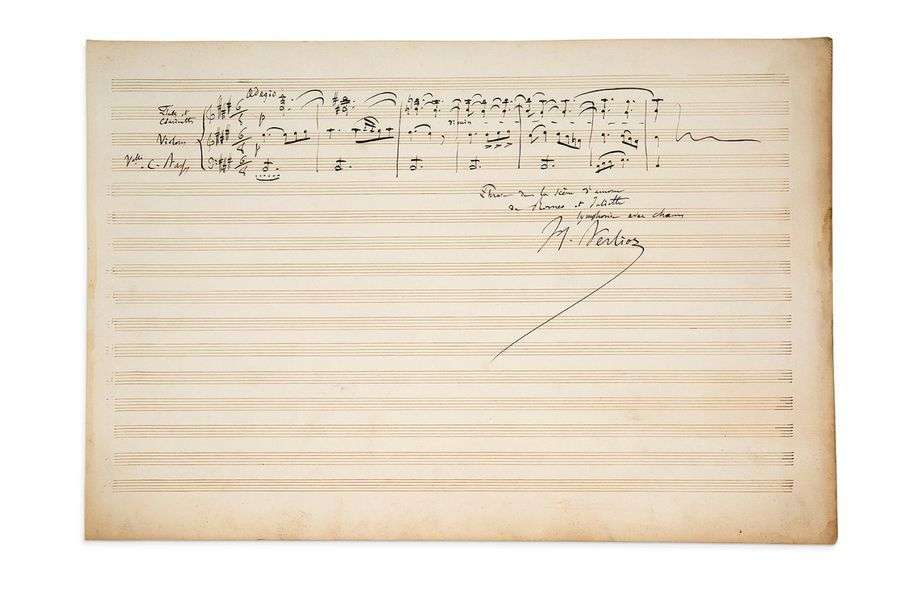 Adagio
Flute et
Clarinette
p
Violons
dimin
p
C. Bass
Phrase de la Scène d'amour
de Romeo et Juliette
Symphonie avec chœurs
H. Berlioz